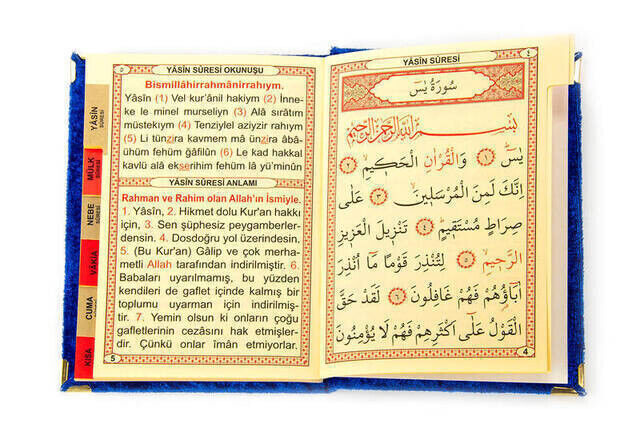 YÂSİN SÛRESİ
٤
سُورَةُ يٰسٓ
بِسْمِ اللّٰهِ الرَّحْمٰنِ الرَّحِيمِ
يٰسٓ ﴿١﴾ وَالْقُرْاٰنِ الْحَكِيمِ ﴿٢﴾
اِنَّكَ لَمِنَ الْمُرْسَلِينَ ﴿٣﴾ عَلٰى
صِرَاطٍ مُسْتَقِيمٍ ﴿٤﴾ تَنْزِيلَ الْعَزِيزِ
الرَّحِيمِ ﴿٥﴾ لِتُنْذِرَ قَوْمًا مَٓا اُنْذِرَ
اٰبَٓاؤُهُمْ فَهُمْ غَافِلُونَ ﴿٦﴾ لَقَدْ حَقَّ
الْقَوْلُ عَلٰٓى اَكْثَرِهِمْ فَهُمْ لَا يُؤْمِنُونَ
4
٥
YÂSİN SÛRESİ OKUNUŞU
Bismillâhirrahmânirrahıym.
Yâsîn (1) Vel kur'ânil hakiym (2) İnne-
ke le minel murseliyn (3) Alâ sırâtım
müstekıym (4) Tenziylel aziyzir rahıym
(5) Li tünzira kavmem mâ ünzira âbâ-
ühüm fehüm ğâfilûn (6) Le kad hakkal
kavlü alâ ekserihim fehüm lâ yü'minûn
YÂSİN SÛRESİ ANLAMI
Rahman ve Rahim olan Allah'ın ismiyle.
1. Yâsîn, 2. Hikmet dolu Kur'an hakkı
için, 3. Sen şüphesiz peygamberler-
densin. 4. Dosdoğru yol üzerindesin.
5. (Bu Kur'an) Gâlip ve çok merha-
metli Allah tarafından indirilmiştir. 6.
Babaları uyarılmamış, bu yüzden
kendileri de gaflet içinde kalmış bir
toplumu uyarman için indirilmiş-
tir. 7. Yemin olsun ki onların çoğu
gafletlerinin cezasını hak etmişler-
dir. Çünkü onlar îmân etmiyorlar.
5
YÂSİN
SÛRESİ
MÜLK
SÛRESİ
NEBE
SÛRESİ
VÂKIA
CUMA
KISA